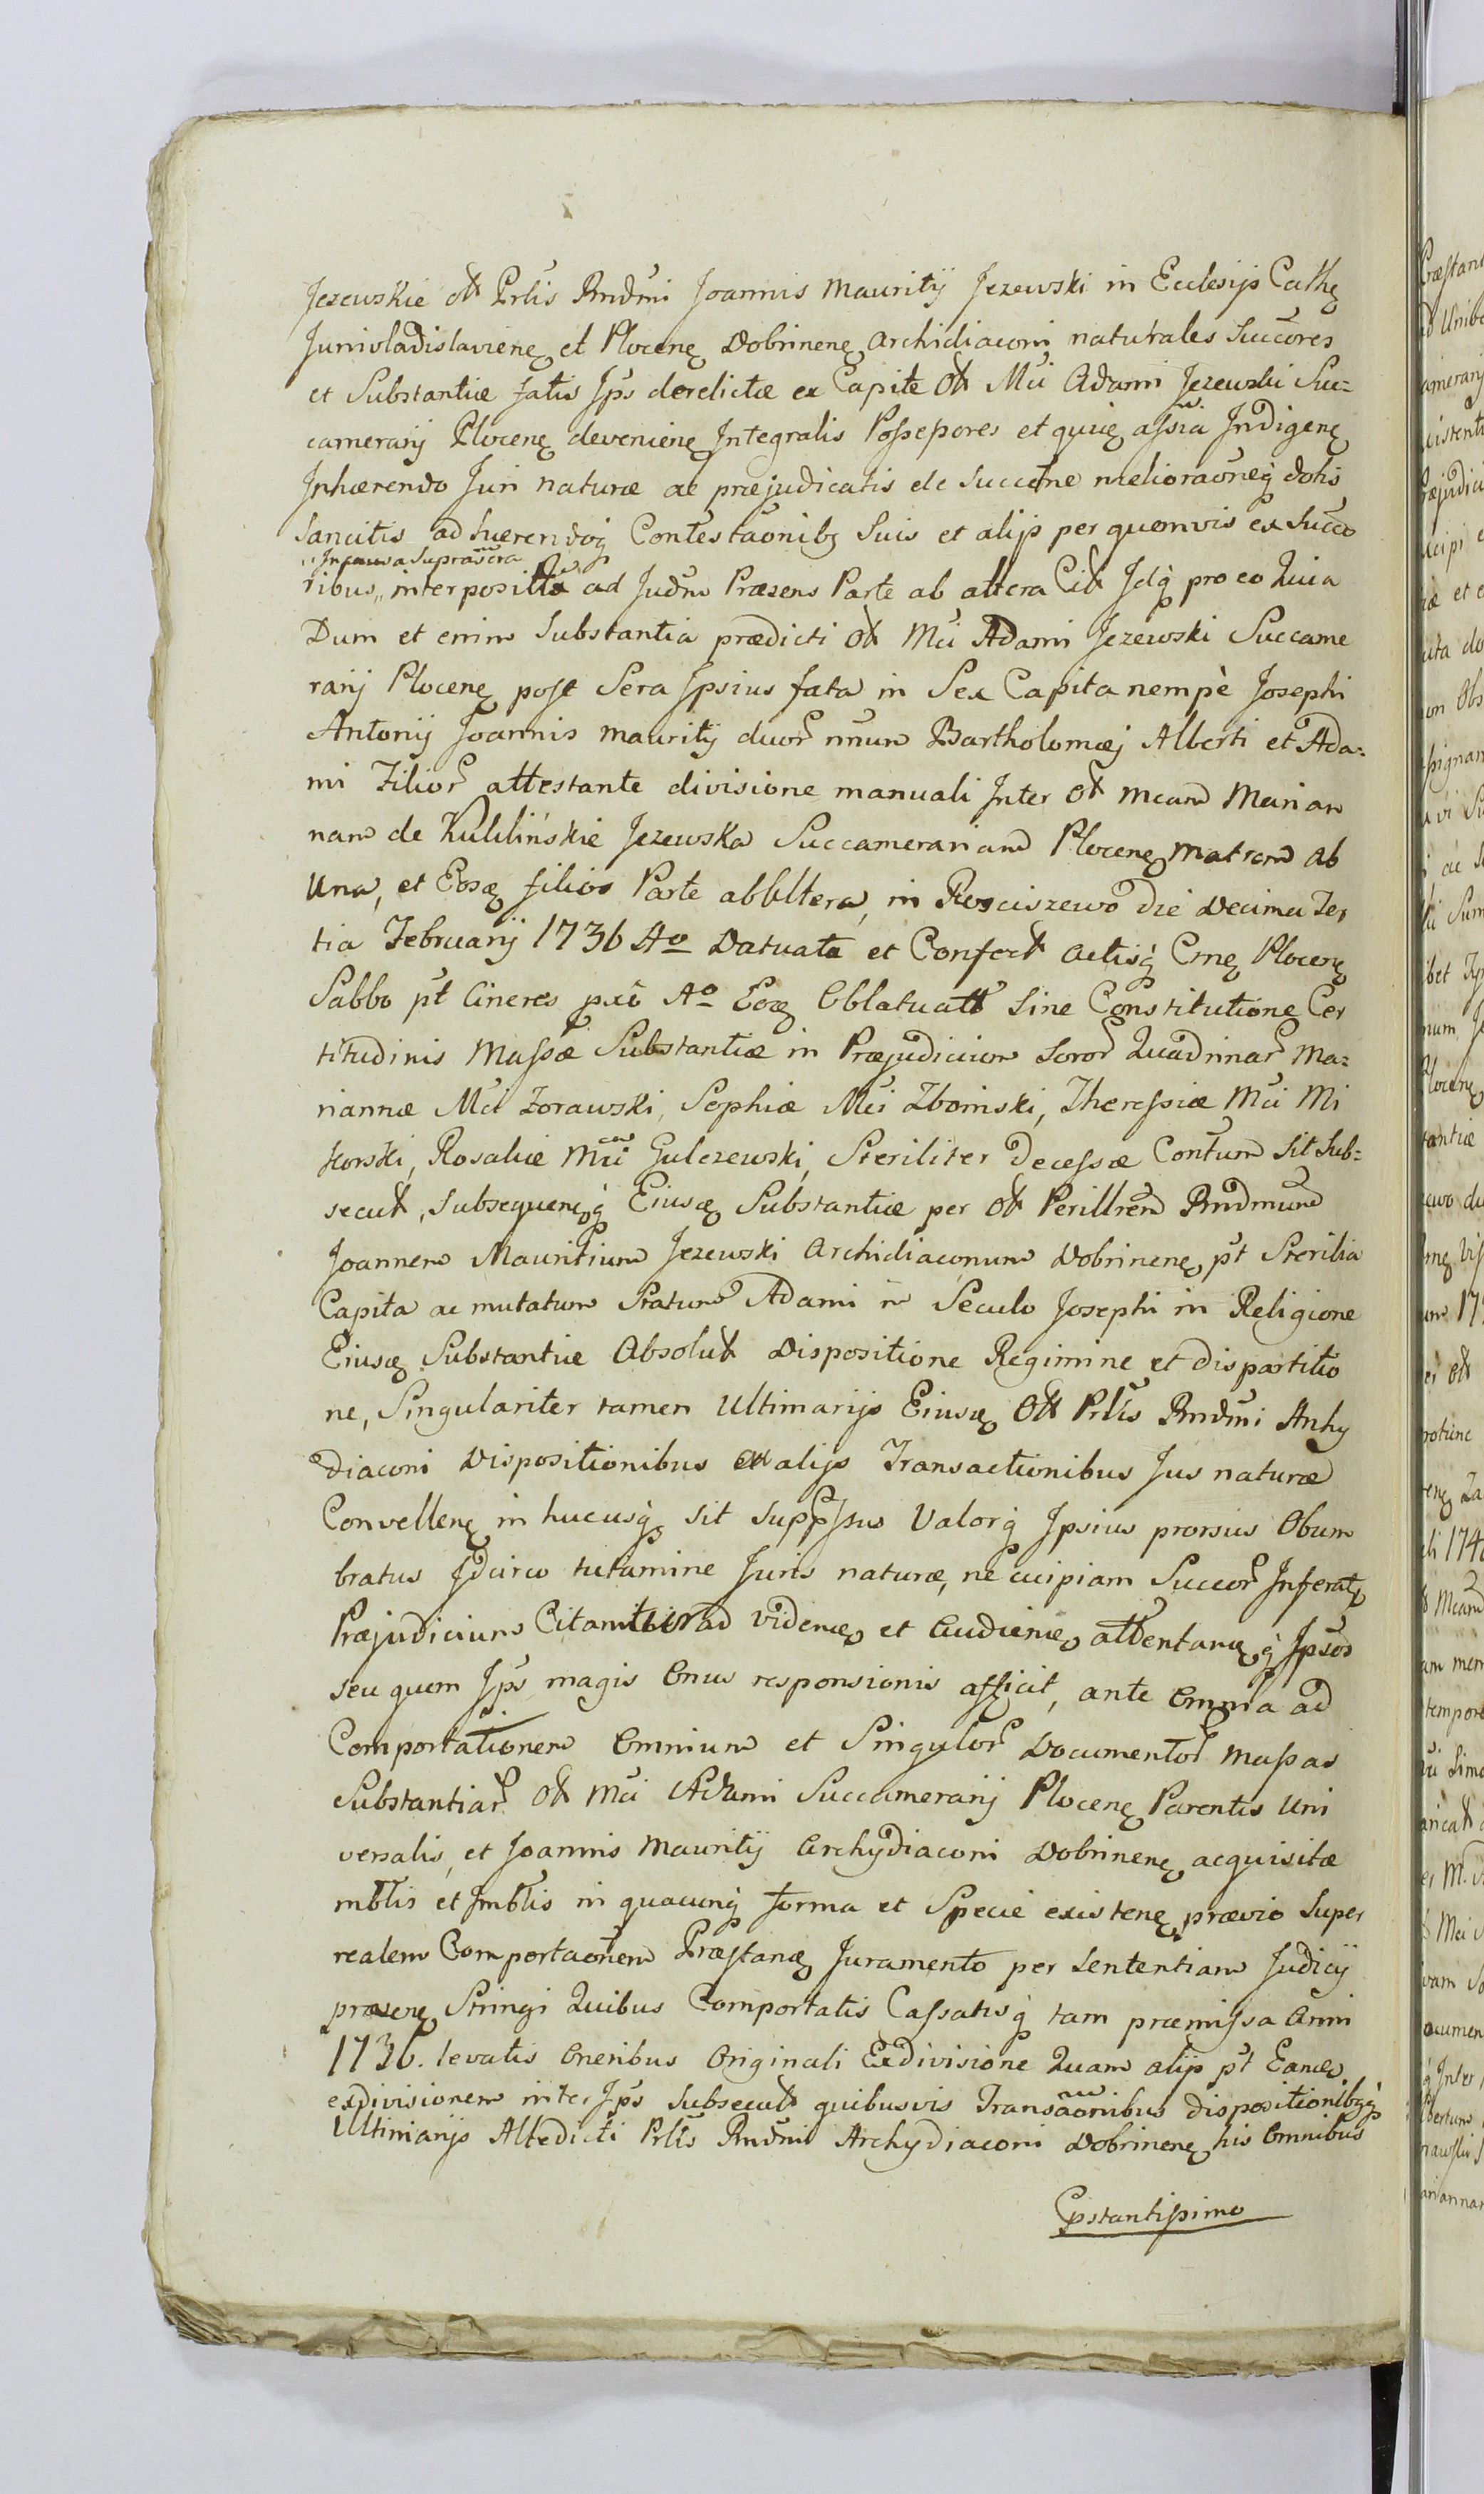 Jezewskie olt Prlis Rndmi Joannis Mauritij Jezewski in Ecclesijs Cathę
Junivladislavienę et Plocenę Dobrinenę Archidiaconi naturales Succores
et Substantiæ fatis Jps derelictæ ex Capite Olt Mci Adami Jezewski Suc=
camerarij Plocenę devenienę Integralis Possessores et qurię assia Indigenę
Inhærendo Juri naturæ ac præjudicatis de Succone melioraonęq dotis
Sancitis adhuerendoq Contestaonibq Suis et alijs per quemvis ex Succo
In causa Suprascra
ribus,, interposittis ad Judm Præsens Parte ab altera Cit Jdq pro eo Quia
Dum et enim Substantia prædicti Olt Mci Adami Jezewski Succame
rarij Plocenę post Sera Ipsius fata in Sex Capita nempè Josephi
Antonij Joannis Mauritij duor nnum Bartholomæj Alberti et Ada=
mi Filior attestante divisione manuali Inter Olt Mcam Marian
nam de Kuklińskie Jezewska Succamerariam Plocenę Matrem ab
Una, et Eosę filios Parte ab Altera, in Rosciszewo die Decima Ter
tia Februarij 1736 Ao Datuata et Confect Actisq Crnę Plocenę
Sabbo pt Cineres pxi Ao Eoę Oblatuatt Sine Constitutione Cer
titudinis Massæ Substantiæ in Præjudicium Soror Quadrinar Ma=
riannæ Mci Zorawski, Sophiæ Mci Zboinski, Theressiæ Mci Mi
korski, Rosaliæ Mci Gulczewski, Steriliter Decessæ Contum sit Sub=
secut, Subsequenęq Eiusę Substantiæ per Olt Perillrem Rndmum
Joannem Mauritium Jezewski Archidiaconum Dobrinenę, pt Sterilia
Capita ac mutatum Statum Adami in Seculo Josephi in Religione
Eiusę Substantiæ Absolut Dispositione Regimine et dispartitio
ne, Singulariter tamen Ultimarijs Eiusę Olt Prlis Rndmi Archy
diaconi Dispositionibus et alijs Transactionibus Jus naturæ
Convellenę in hucusq sit suppssus Valorq Ipsius prorsus Obum
bratus Idcirco tutamine Juris naturæ, ne cuipiam Succor Inferatę
Præjudicium Citantur ad Videndę et Audiendę attentandęq Ipsos
seu quem Jps magis Onus responsionis afficit, ante Omnia ad
Comportationem Omnium et Singulor Documentor Massas
Substantiar Olt Mci Adami Succamerarij Plocenę Parentis Uni
versalis, et Joannis Mauritij Archydiaconi Dobrinenę acquisitæ
mblis et Imblis in quacunq forma et Specie existenę, prævio Super
realem Comportaonem Præstandę Juramento per Sententiam Judicij
præsenę Stringi Quibus Comportatis Cassatisq tam præmissa Anni
1736. levatis Oneribus Originali Exdivisione Quam alijs pt Eandę
exdivisionem inter Jps Subsecut quibusvis Transaonibus dispositionibqq
Ultimarijs Altedicti Prlis Rndmi Archydiaconi Dobrinenę his Omnibus
Cpstantissimo